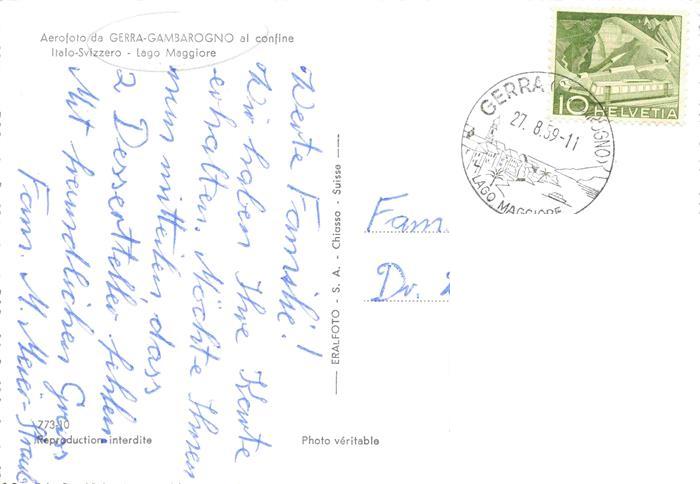 Aerofoto da GERRA-GAMBAROGNO al confine
Italo-Svizzero - Lago Maggiore
Werte Familie!
Wir haben Ihre Karte
erhalten. Möchte Ihnen
nur mitteilen, dass
2 Dessertteller fehlen.
Mit freundlichen Gruss
Fam. M. 
773-10
Reproduction interdite
Photo véritable
ERALFOTO - S. A. - Chiasso - Suisse
10 HELVETIA
GERRA
27. 8. 59-11
LAGO MAGGIORE
Fam.
Dr.